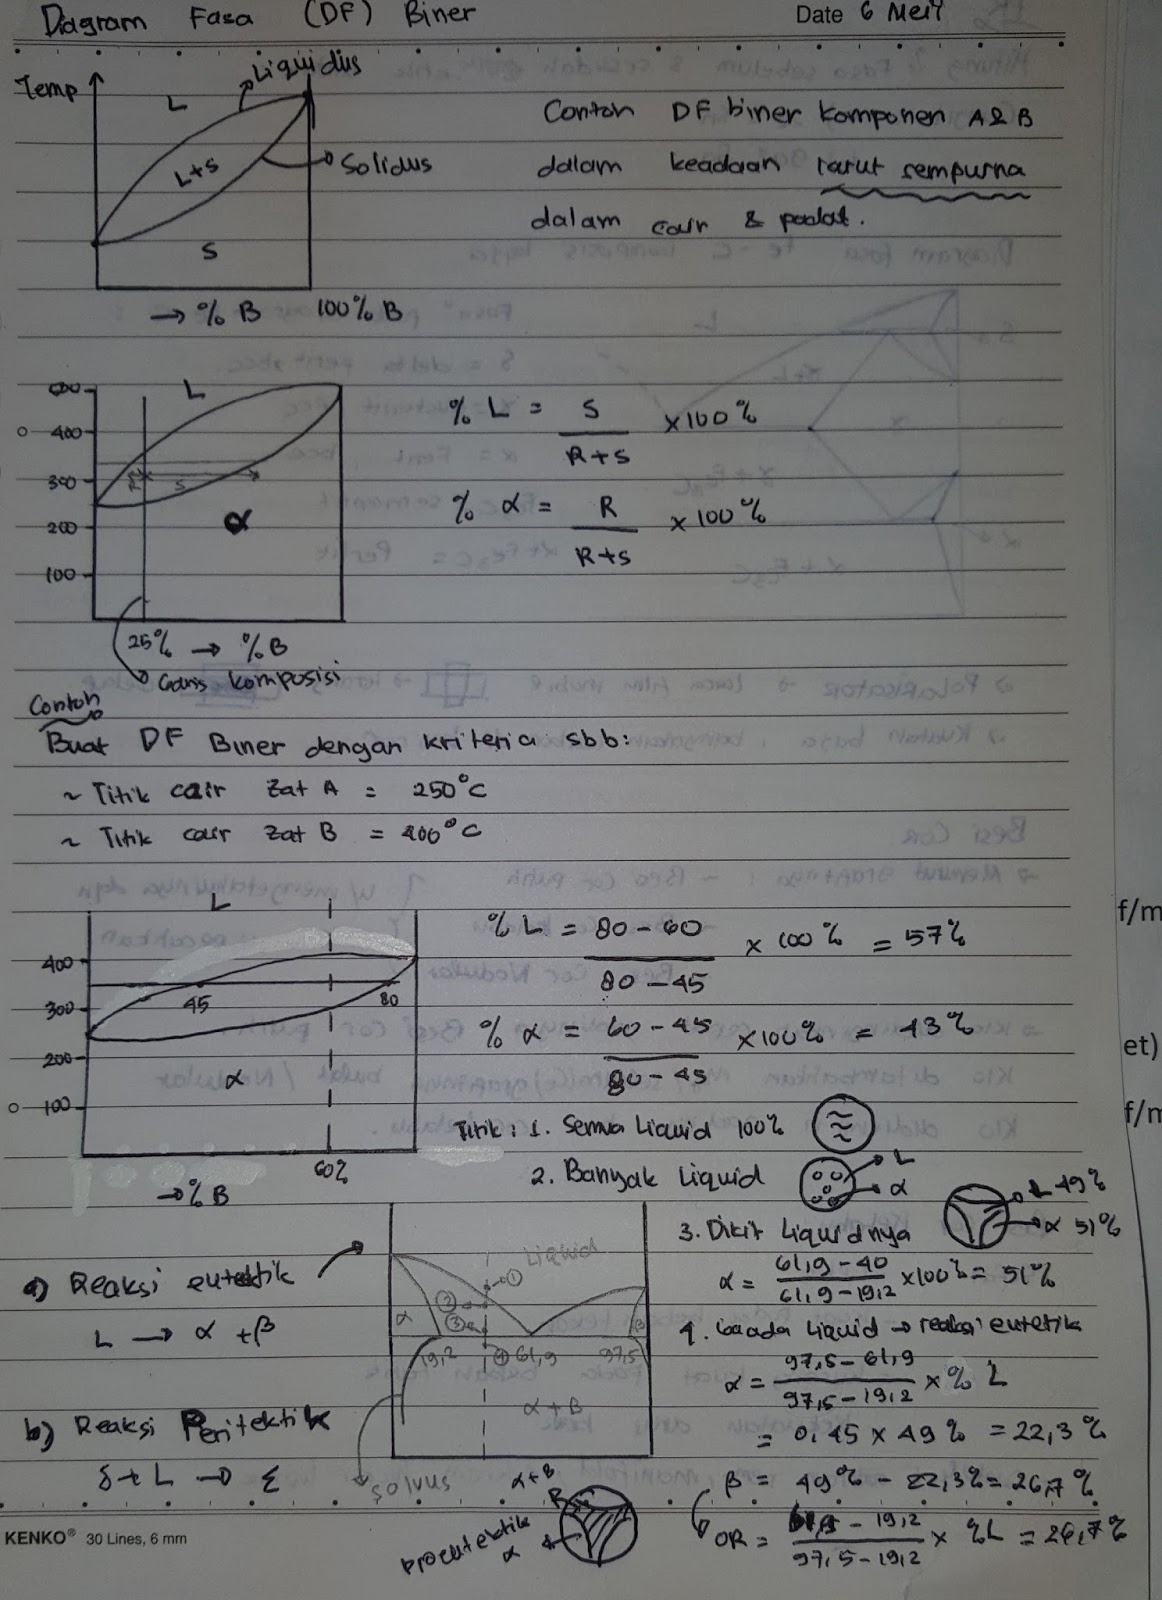 Diagram Fasa (DF) Biner
Date 6 Mei 17
Temp
L
Liquidus
L+S
Solidus
S
→ % B 100% B
Contoh DF biner komponen A & B
dalam keadaan larut sempurna
dalam cair & padat.
L
400
300
200
100
R S
α
25% → % B
Garis komposisi
% L = S / R+S × 100%
% α = R / R+S × 100%
Contoh
Buat DF Biner dengan kriteria sbb:
~ Titik cair zat A = 250°C
~ Titik cair zat B = 400°C
L
400
300
200
100
45
80
α
60%
→ % B
% L = 80 - 60 / 80 - 45 × 100% = 57%
% α = 60 - 45 / 80 - 45 × 100% = 43%
Titik : 1. Semua Liquid 100%
2. Banyak Liquid
L
α
3. Dikit Liquidnya
L 49%
α 51%
α = 61,9 - 40 / 61,9 - 19,2 × 100% = 51%
4. Gaada Liquid → reaksi eutetik
α = 97,5 - 61,9 / 97,5 - 19,2 × % L
= 0,45 × 49% = 22,3%
β = 49% - 22,3% = 26,7%
OR = 61,9 - 19,2 / 97,5 - 19,2 × %L = 26,7%
a) Reaksi eutektik
L → α + β
b) Reaksi Peritektik
δ + L → ε
Liquid
①
②
③
④
α
β
19,2
61,9
97,5
α + β
Solvus
α+β
proeutektik
α
f/m
et)
f/m
KENKO® 30 Lines, 6 mm